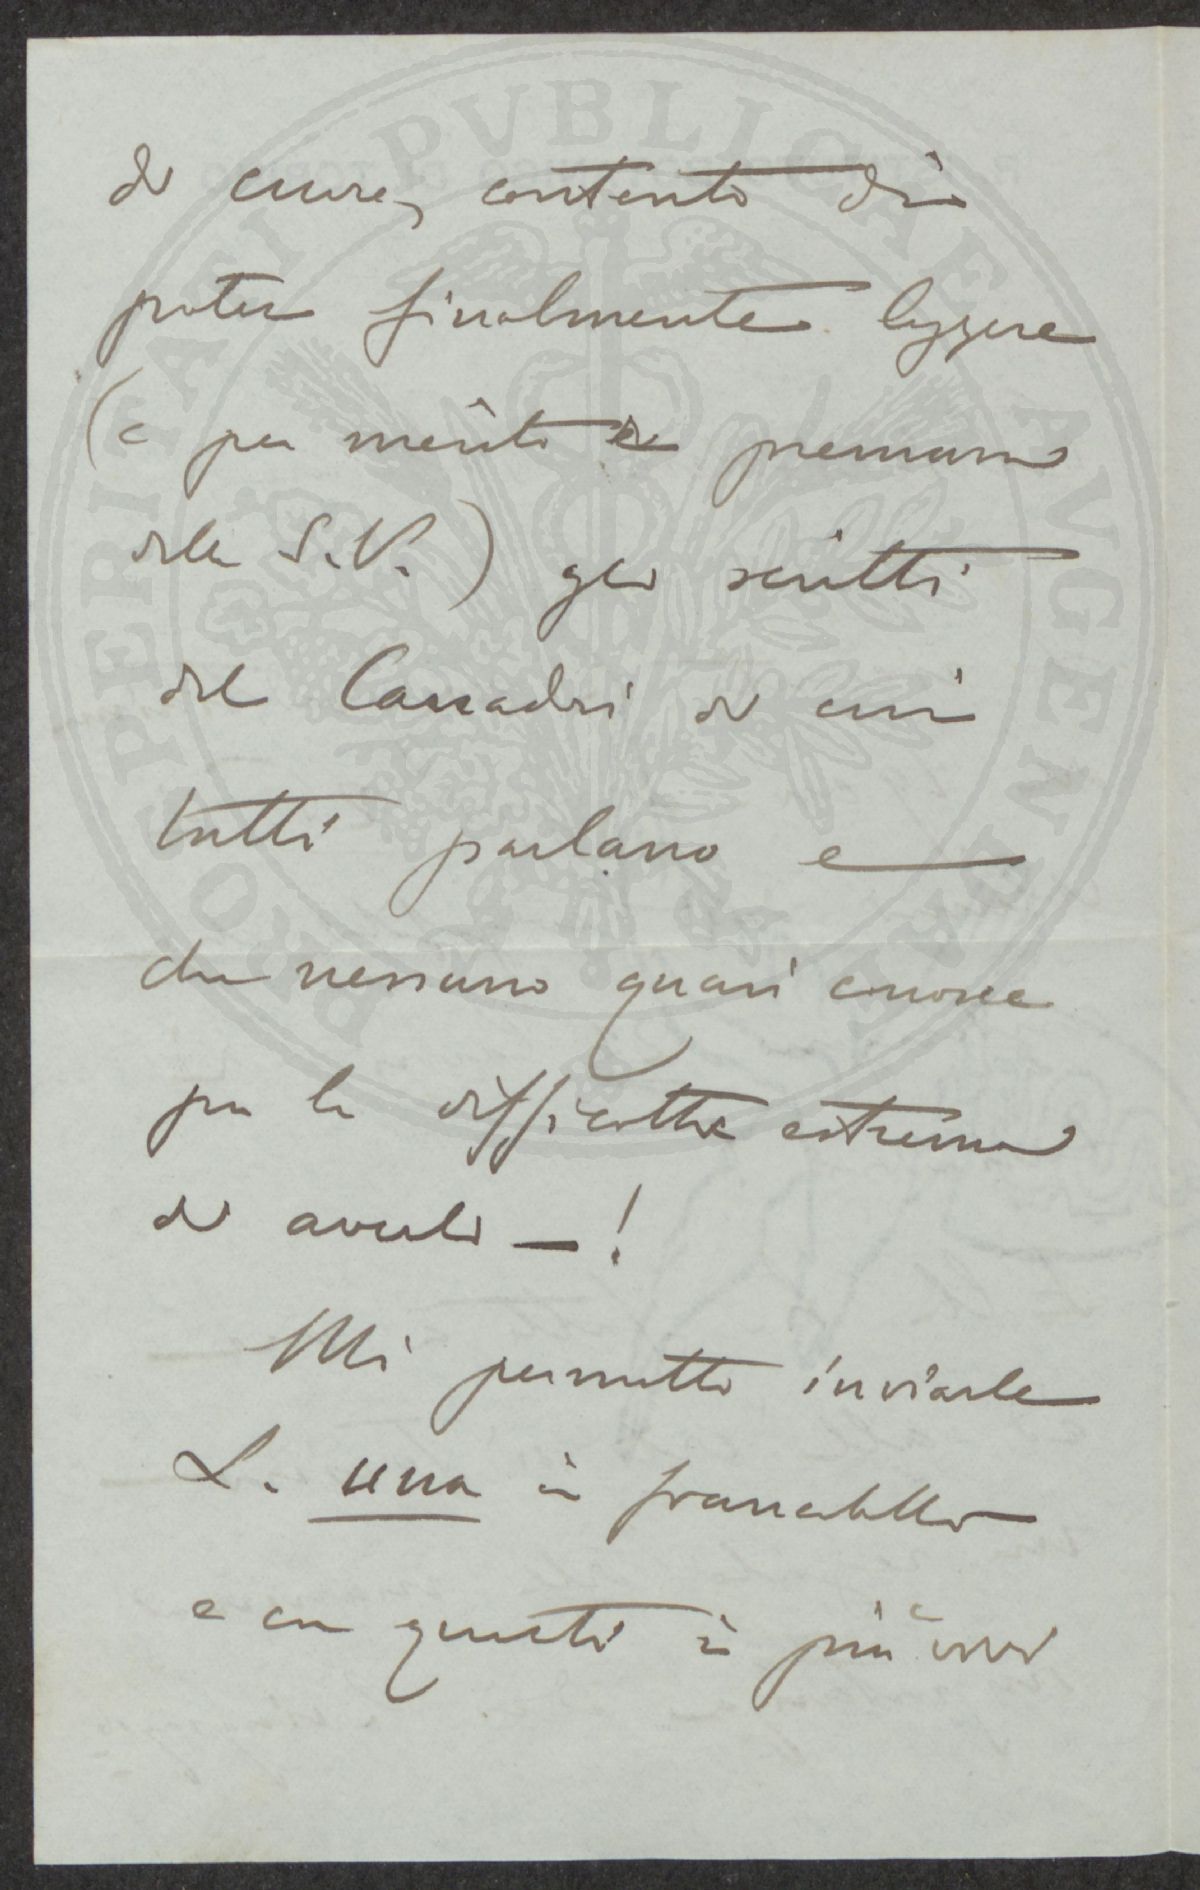 di cuore, contento di
poter finalmente leggere
(e per merito e premura
della S.V.) gli scritti
del Cassadri di cui
tutti parlano e
che nessuno quasi conosce
per la difficoltà estrema
di averli — !
Mi permetto inviarle
L. una in francobolli
e con questi i più vivi
PROSPERITATI PVBLICAE AVGENDAE